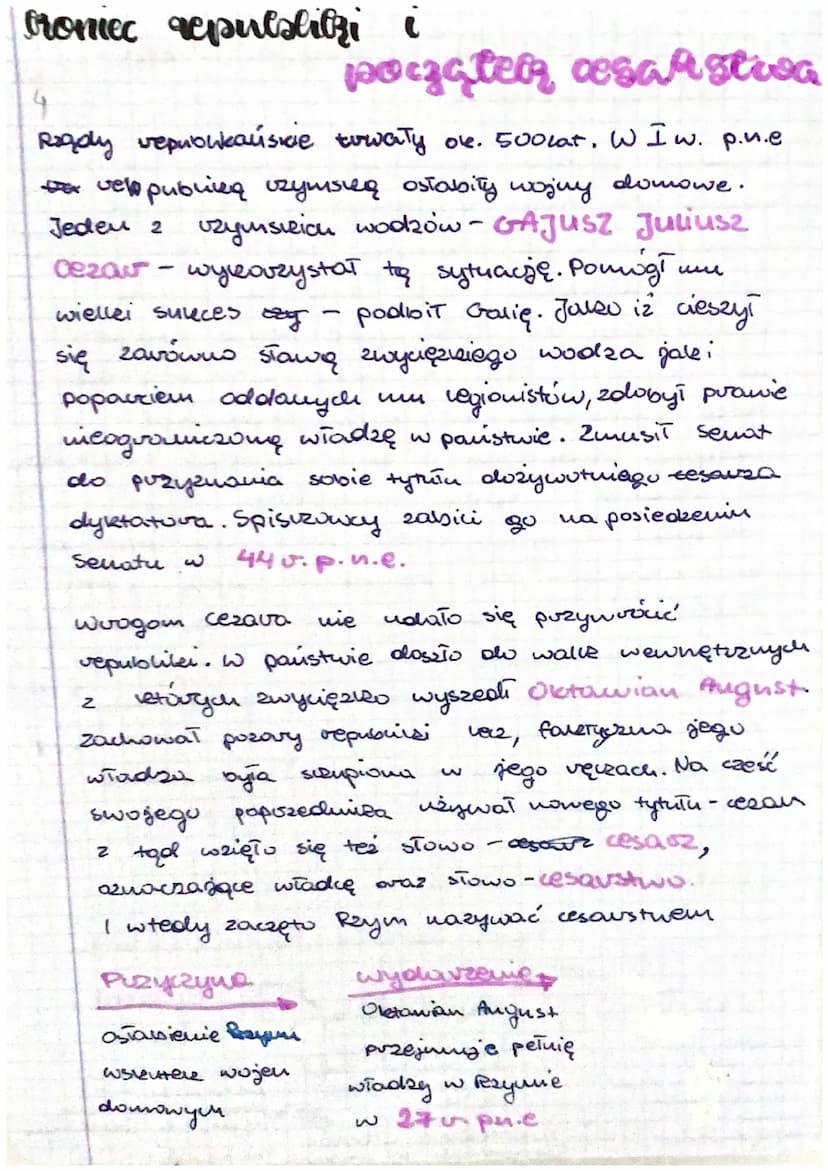 Koniec republiki i
początek cesarstwa
4
Rządy republikańskie trwały ok. 500lat. W I w. p.n.e
republiką rzymską osłabiły wojny domowe.
Jeden z rzymskich wodzów - GAJUSZ Juliusz
Cezar - wykorzystał tą sytuację. Pomógł mu
wielki sukces - podbił Galię. Jako iż cieszył
się zarówno sławą zwycięzkiego wodza jak i
poparciem oddanych mu legionistów, zdobył prawie
nieograniczoną władzę w państwie. Zmusił Senat
do przyznania sobie tytułu dożywotniego cesarza
dyktatora. Spiskowcy zabili go na posiedzeniu
Senatu w 44 r. p.n.e.
Wrogom cezara nie udało się przywrócić
republiki. W państwie doszło do walk wewnętrznych
z których zwycięzko wyszedł Oktawian August.
Zachował pozory republiki lecz, faktyczna jego
władza była skupiona w jego rękach. Na cześć
swojego poprzednika używał nowego tytułu - cezar
z tąd wzięło się też słowo - cesarz cesarz,
oznaczające władcę oraz słowo - cesarstwo.
I wtedy zaczęto Rzym nazywać cesarstwem
Przyczyna wydarzenie
Osłabienie Rzymu
wskutek wojen
domowych
Oktawian August
przejmuje pełnię
władzy w Rzymie
w 27 r. p.n.e